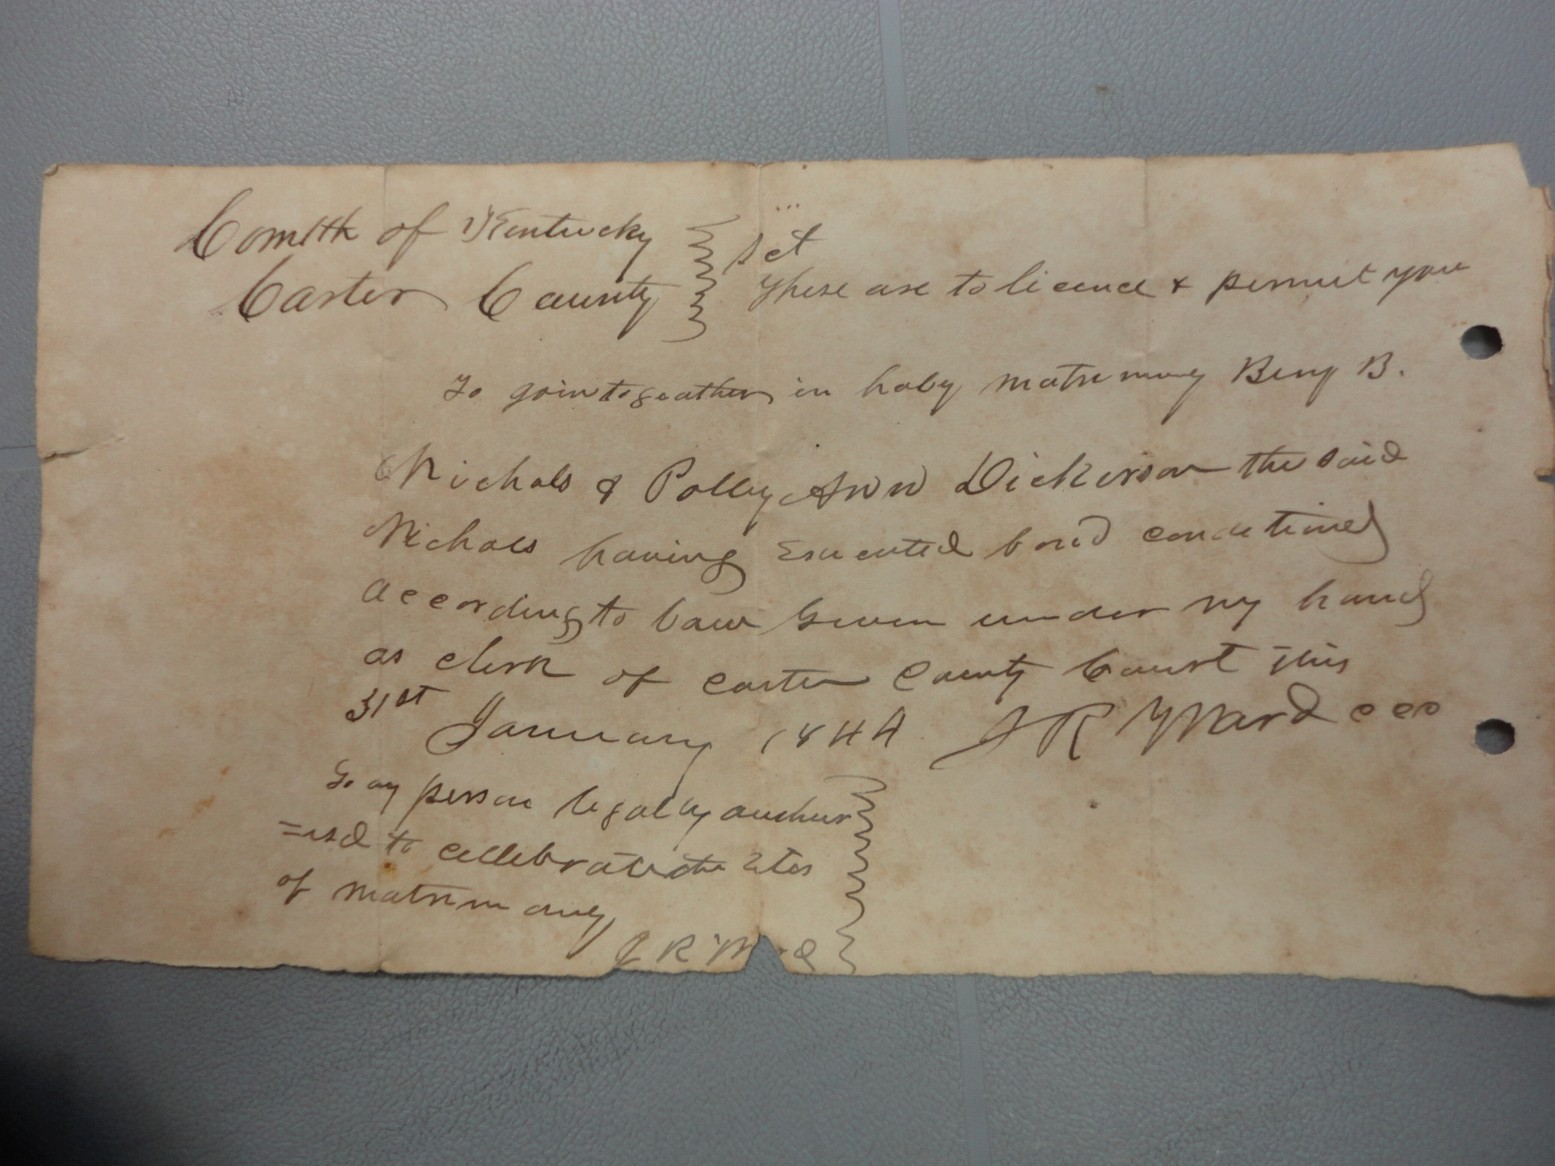 Comlth of Kentucky
Carter County } Sct
These are to licence & permit you
To join togeather in holy matrimony Benj B.
Nichols & Polly Ann Dickerson the said
Nichols having Executed bond conditioned
according to law Given under my hand
as clerk of Carter County Court this
31st January 1844 J R Ward ccc
To any person legally authur
=ised to cellebrate the rites
of matrimony
J R Ward